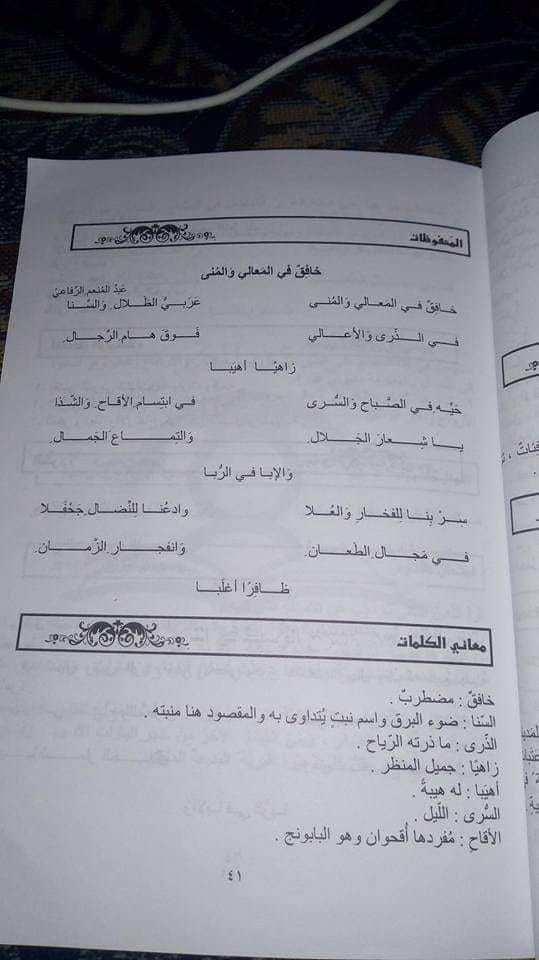 المحفوظات
خافِقٌ في المَعالي وَالمُنى
عبدُ المنعم الرِّفاعيّ
خـافِـقٌ في المَـعـالي والمُنـى عَرَبـيُّ الظّـلال ِ والسَّنـا
في الـذّرى وَالأعـالي فَـوقَ هـام ِ الرِّجـال ِ
زاهيًـا أهيَبـا
حَيِّـه في الصَّبـاح والسُّرى في ابتِسـام ِ الأقـاح ِ وَالشَّـذا
يـا شِـعارَ الجَـلال ِ والتِمـاع َ الجَمـال ِ
وَالإبـا في الرُّبـا
سِـرْ بِنـا لِلفَخـار ِ وَالعُـلا وادعُنـا لِلنِّضـال ِ جَحْفَـلا
في مَجـال ِ الطّعـان ِ وَانفِجـار ِ الزَّمـان ِ
ظـافِرًا أغلَبـا
معاني الكلمات
خافقٌ : مضطربٌ .
السّنا : ضوء البرق واسم نبتٍ يُتداوى به والمقصود هنا منبته .
الذّرى : ما ذرته الرّياح .
زاهيًا : جميل المنظر .
أهيَبا : له هيبةٌ .
السُّرى : اللّيل .
الأقاح ِ : مُفردها أقحوان وهو البابونج .
٤١